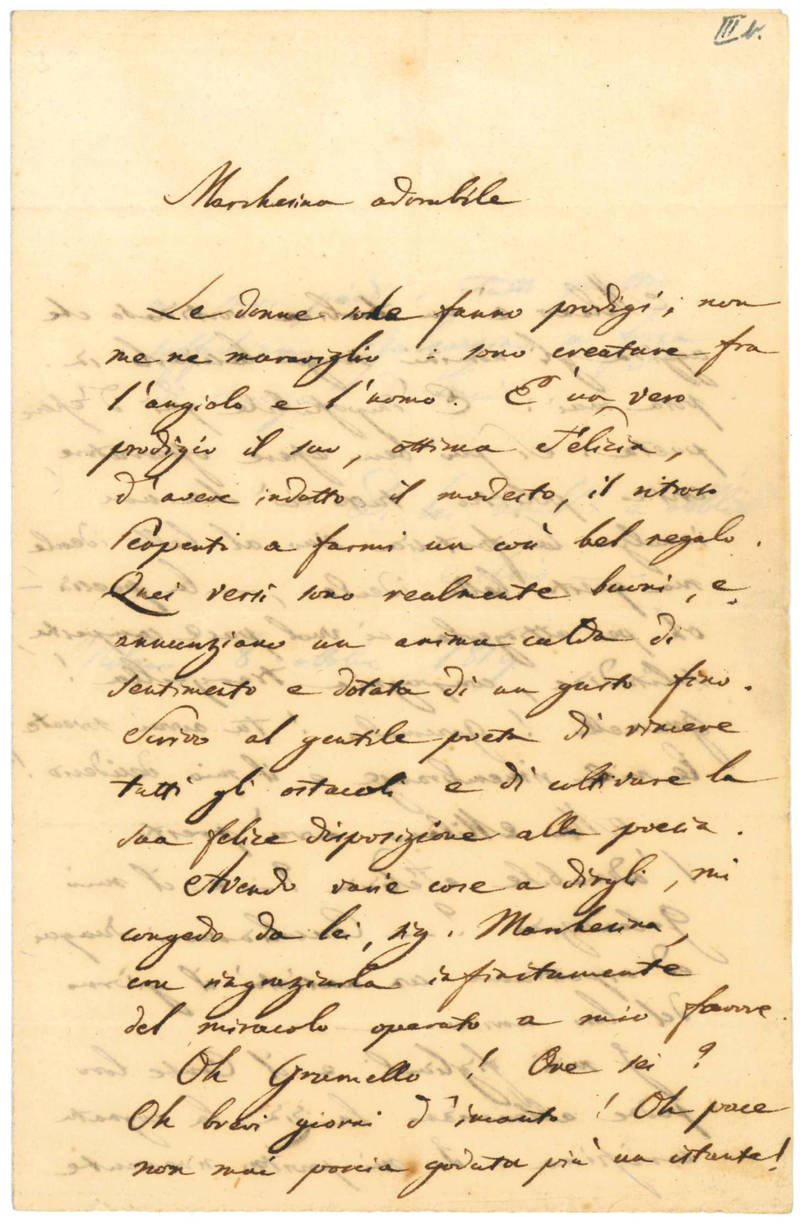 III b.
Marchesina adorabile
Le donne sole fanno prodigi; non
me ne maraviglio: sono creature fra
l'angiolo e l'uomo. È un vero
prodigio il suo, ottima Felicia,
d'avere indotto il modesto, il ritroso
a farmi un così bel regalo.
Quei versi sono realmente buoni, e
annunziano un anima calda di
sentimento e dotata di un gusto fino.
Scrivo al gentile poeta di vincere
tutti gli ostacoli e di coltivare la
sua felice disposizione alla poesia.
Avendo varie cose a dirgli, mi
congedo da lei, sig. Marchesina,
con ringraziarla infinitamente
del miracolo operato a mio favore.
Oh Grumello! Ove sei?
Oh brevi giorni d'incanto! Oh pace
non mai poscia goduta più un istante!